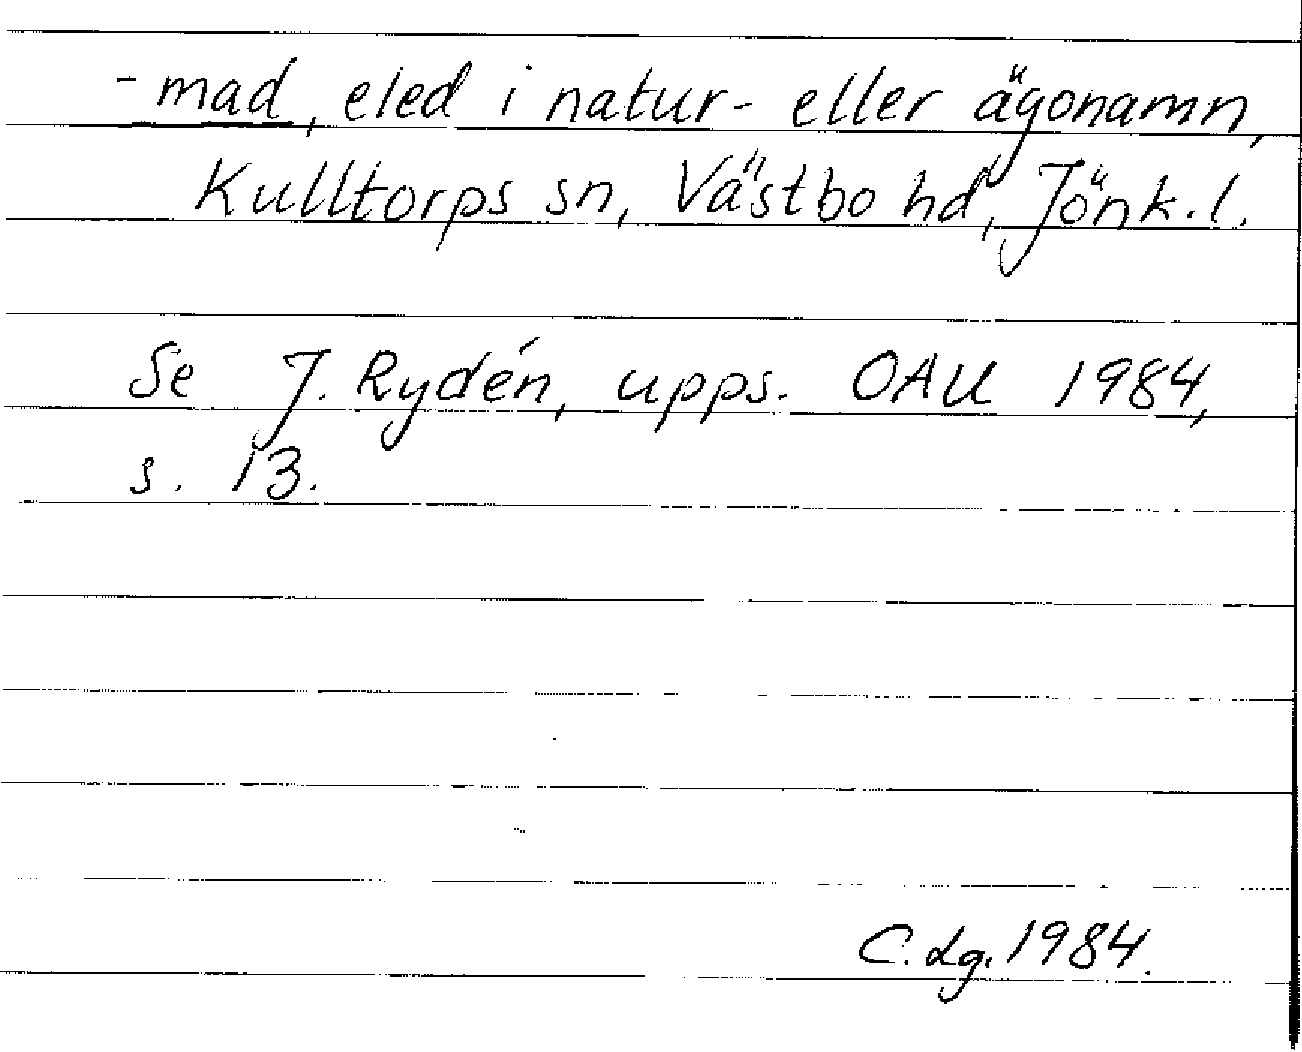 -mad, eled i natur- eller ägonamn,
Kulltorps sn, Västbo hd, Jönk.l.
Se J. Rydén, upps. OAU 1984,
s. 13.
C. Lg. 1984.